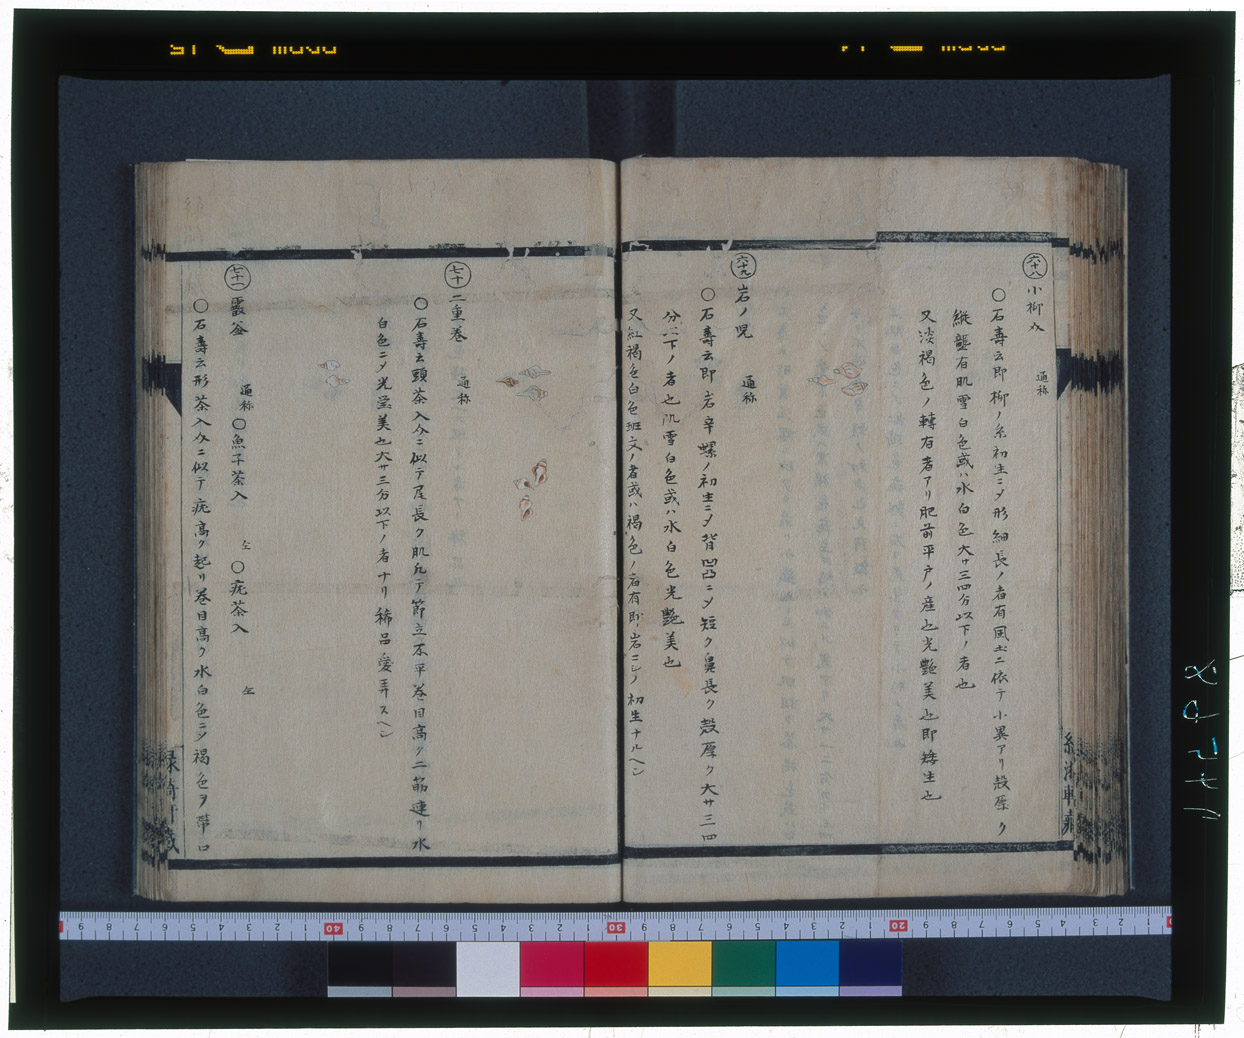 六十八
小柳
通称
〇石壽云即柳ノ糸初生ニメ形細長ノ者有風土ニ依テ小異アリ殻厚ク
縦襞有肌雪白色或ハ水白色大サ三四分以下ノ者也
又淡褐色ノ轉有者アリ肥前平戸ノ産也光艶美也即矮生也
六十九
岩ノ児
通称
〇石壽云即岩辛螺ノ初生ニメ背凹凸ニメ短ク鼻長ク殻厚ク大サ三四
分以下ノ者也肌雪白色或ハ水白色光艶美也
又紅褐色白色班文ノ者或ハ褐色ノ者有即岩ニシノ初生ナルヘシ
七十
二重巻
通称
〇石壽云頭茶入介ニ似テ尾長ク肌丸テ節立不平巻目高ク二筋連リ水
白色ニメ光瑩美也大サ三分以下ノ者ナリ稀品愛弄スヘシ
七十一
霰釜
通称
〇魚子茶入
仝
〇疣茶入
仝
〇石壽云形茶入介ニ似テ疣高ク起リ巻目高ク水白色ニメ褐色ヲ帯口
20
30
40